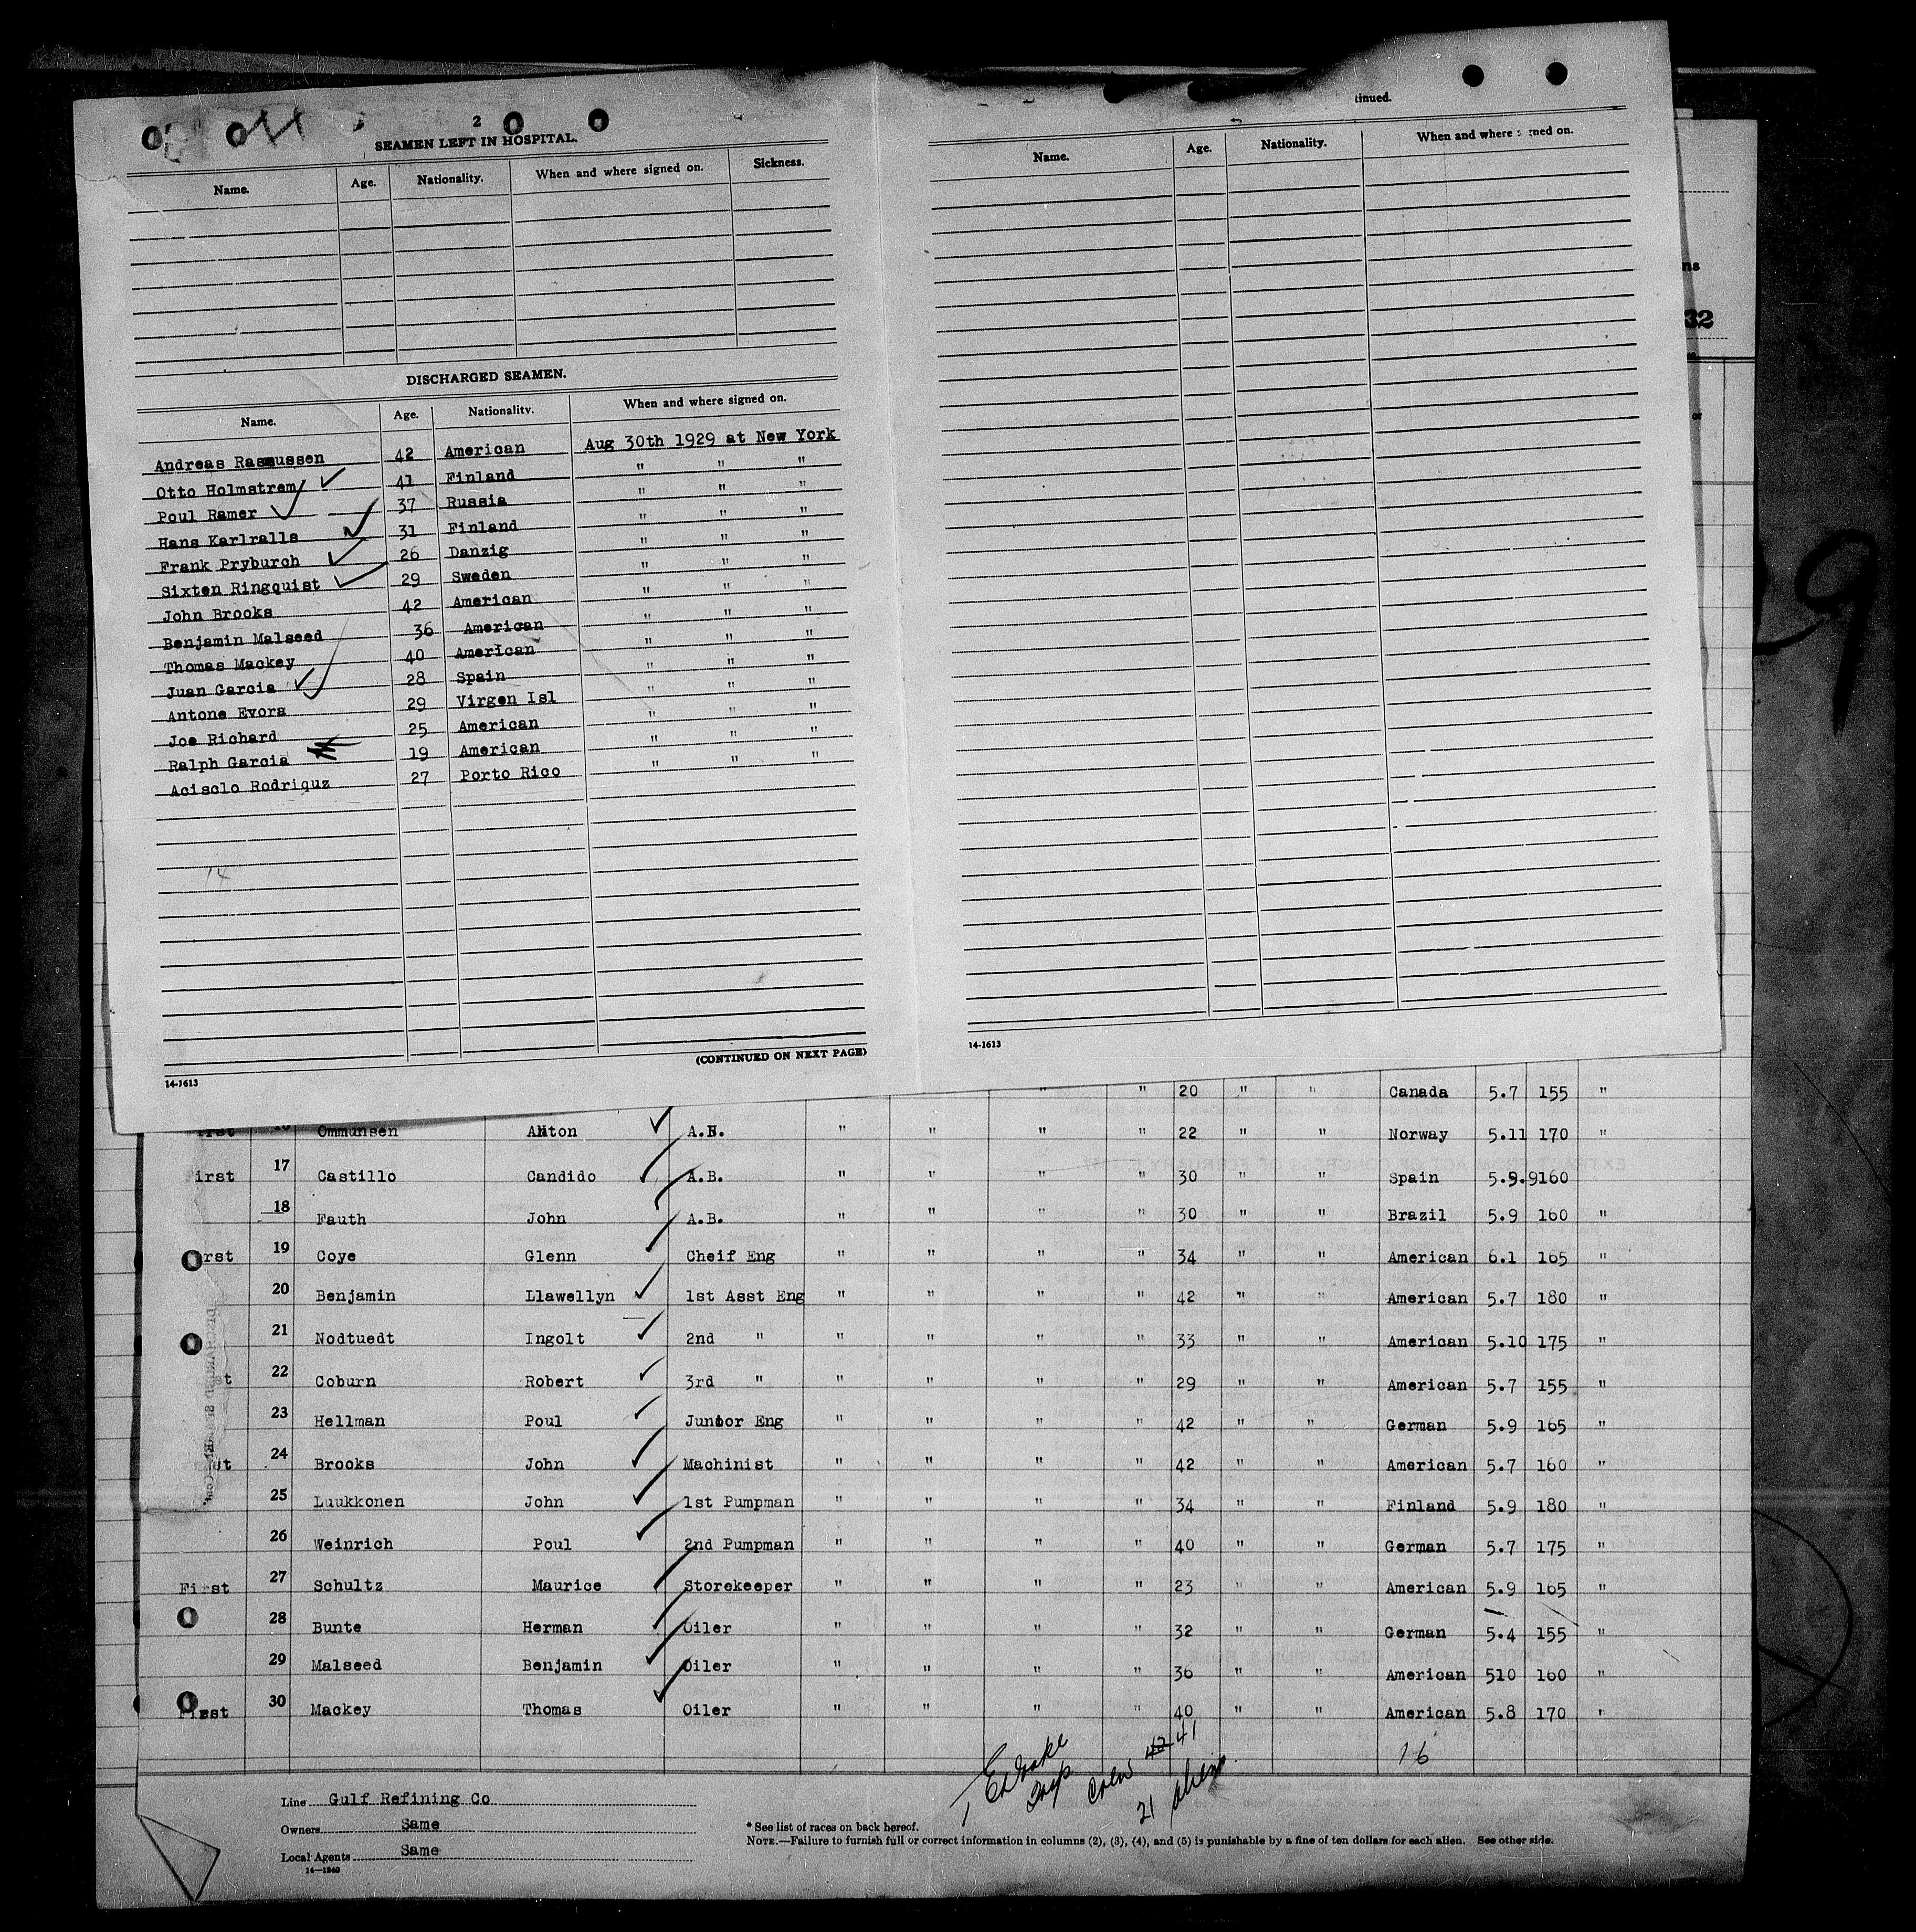 2
SEAMEN LEFT IN HOSPITAL.
Name. Age. Nationality. When and where signed on. Sickness.
DISCHARGED SEAMEN.
Name. Age. Nationality. When and where signed on.
Andreas Rasmussen 42 American Aug 30th 1929 at New York
Otto Holmstrem 41 Finland " " "
Poul Ramer 37 Russia " " "
Hans Karlralls 31 Finland " " "
Frank Pryburch 26 Danzig " " "
Sixten Ringquist 29 Sweden " " "
John Brooks 42 American " " "
Benjamin Malseed 36 American " " "
Thomas Mackey 40 American " " "
Juan Garcia 28 Spain " " "
Antone Evora 29 Virgen Isl " " "
Joe Richard 25 American " " "
Ralph Garcia 19 American " " "
Acisclo Rodriquz 27 Porto Rico " " "
14
(CONTINUED ON NEXT PAGE)
14-1613
tinued.
Name. Age. Nationality. When and where signed on.
14-1613
ns
32
9
" " 20 " " Canada 5.7 155 "
Ommunsen Anton A.B. " " " " 22 " " Norway 5.11 170 "
irst 17 Castillo Candido A.B. " " " " 30 " " Spain 5.9.9160
18 Fauth John A.B. " " " " 30 " " Brazil 5.9 160 "
rst 19 Coye Glenn Cheif Eng " " " " 34 " " American 6.1 165 "
20 Benjamin Llawellyn 1st Asst Eng " " " " 42 " " American 5.7 180 "
21 Nodtuedt Ingolt 2nd " " " " " 33 " " American 5.10 175 "
t 22 Coburn Robert 3rd " " " " " 29 " " American 5.7 155 "
23 Hellman Poul Junior Eng " " " " 42 " " German 5.9 165 "
t 24 Brooks John Machinist " " " " 42 " " American 5.7 160 "
25 Luukkonen John 1st Pumpman " " " " 34 " " Finland 5.9 180 "
26 Weinrich Poul 2nd Pumpman " " " " 40 " " German 5.7 175 "
First 27 Schultz Maurice Storekeeper " " " " 23 " " American 5.9 165 "
28 Bunte Herman Oiler " " " " 32 " " German 5.4 155 "
29 Malseed Benjamin Oiler " " " " 36 " " American 510 160 "
First 30 Mackey Thomas Oiler " " " " 40 " " American 5.8 170 "
16
Crew 42 41
21 Aliens
Line Gulf Refining Co
Owners Same
Local Agents Same
14-1240
* See list of races on back hereof.
NOTE.—Failure to furnish full or correct information in columns (2), (3), (4), and (5) is punishable by a fine of ten dollars for each alien. See other side.